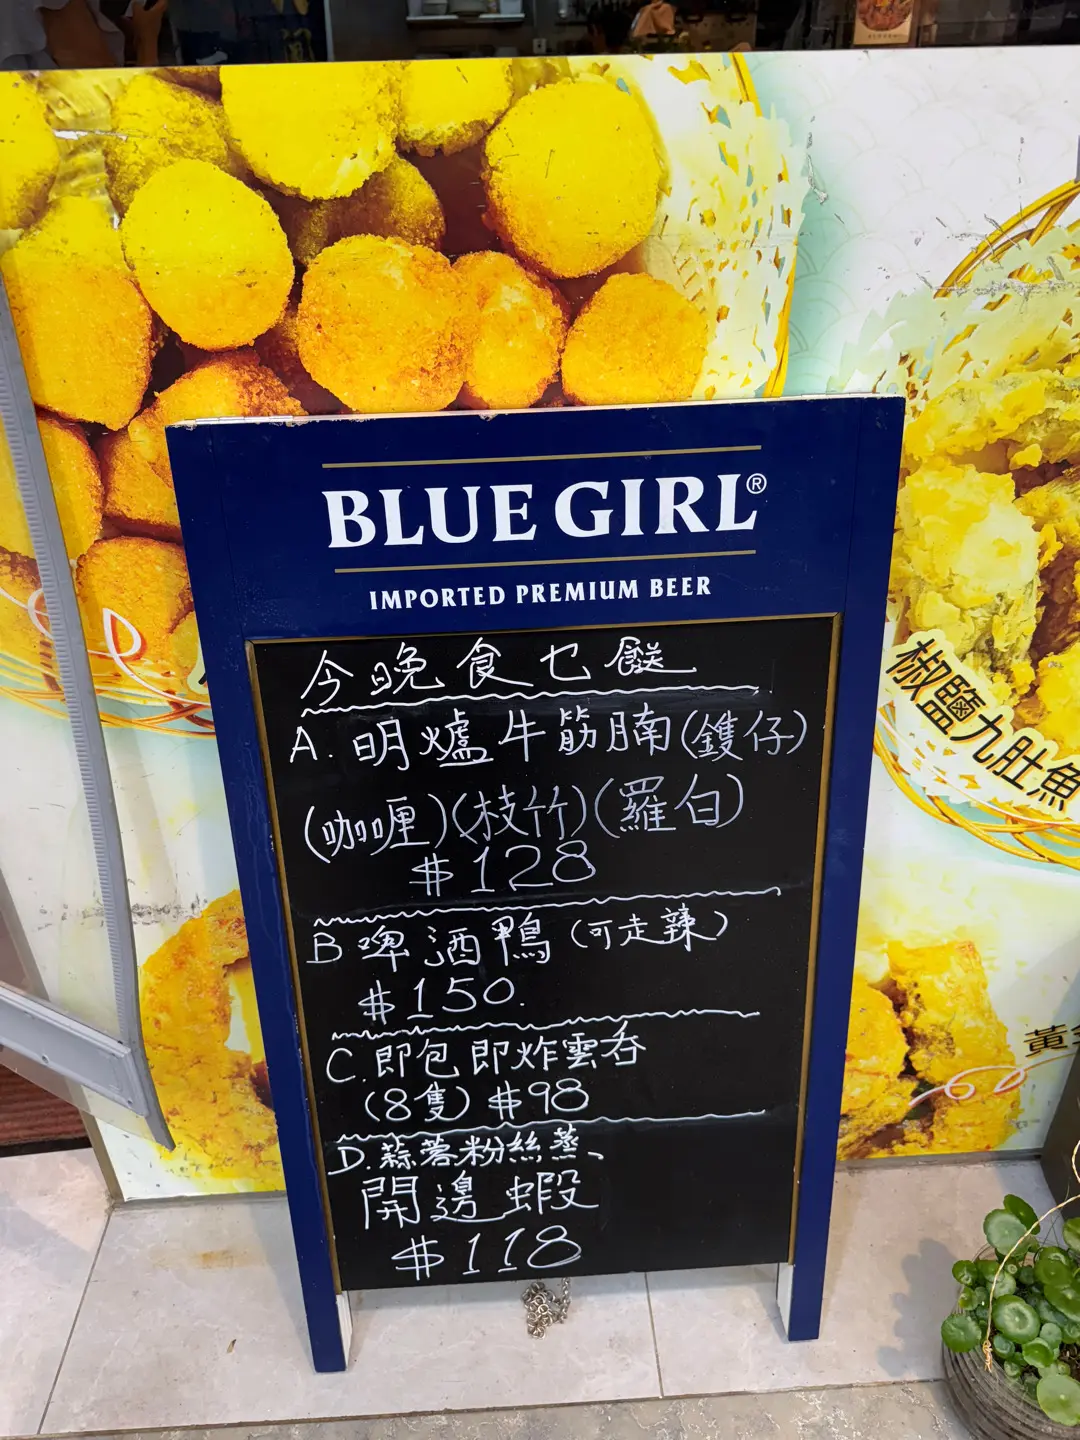 BLUE GIRL®
IMPORTED PREMIUM BEER
今晚食乜餸
A. 明爐牛筋腩(鑊仔)
(咖喱)(枝竹)(羅白)
$128
B 啤酒鴨(可走辣)
$150.
C. 即包即炸雲吞
(8隻) $98
D. 蒜蓉粉絲蒸、
開邊蝦
$118
椒鹽九肚魚
黃